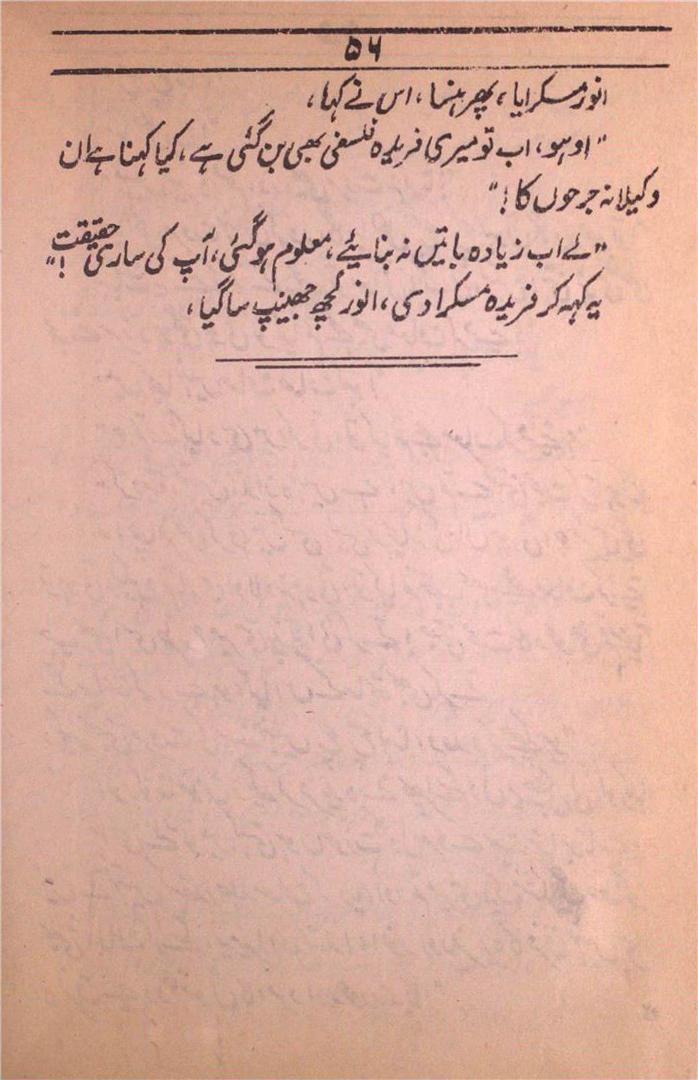 ۵۶
انور مسکرایا، پھر ہنسا، اس نے کہا،
"اوہو، اب تو میری فریدہ فلسفی بھی بن گئی ہے، کیا کہنا ہے ان
وکیلانہ جرحوں کا!"
"لے اب زیادہ باتیں نہ بنایئے، معلوم ہو گئی، آپ کی ساری حقیقت!"
یہ کہہ کر فریدہ مسکرا دی، انور کچھ جھینپ سا گیا،